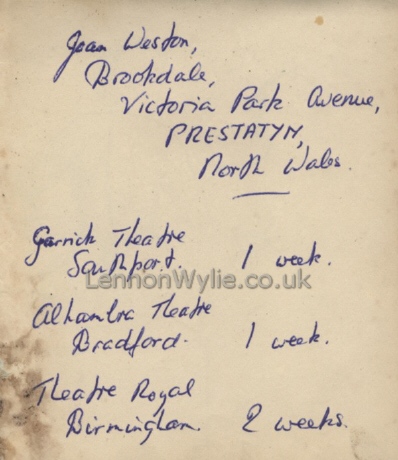 Joan Weston,
Brookdale,
Victoria Park Avenue,
PRESTATYN,
North Wales.
Garrick Theatre
Southport. 1 week.
LennonWylie.co.uk
Alhambra Theatre
Bradford. 1 week.
Theatre Royal
Birmingham. 2 weeks.